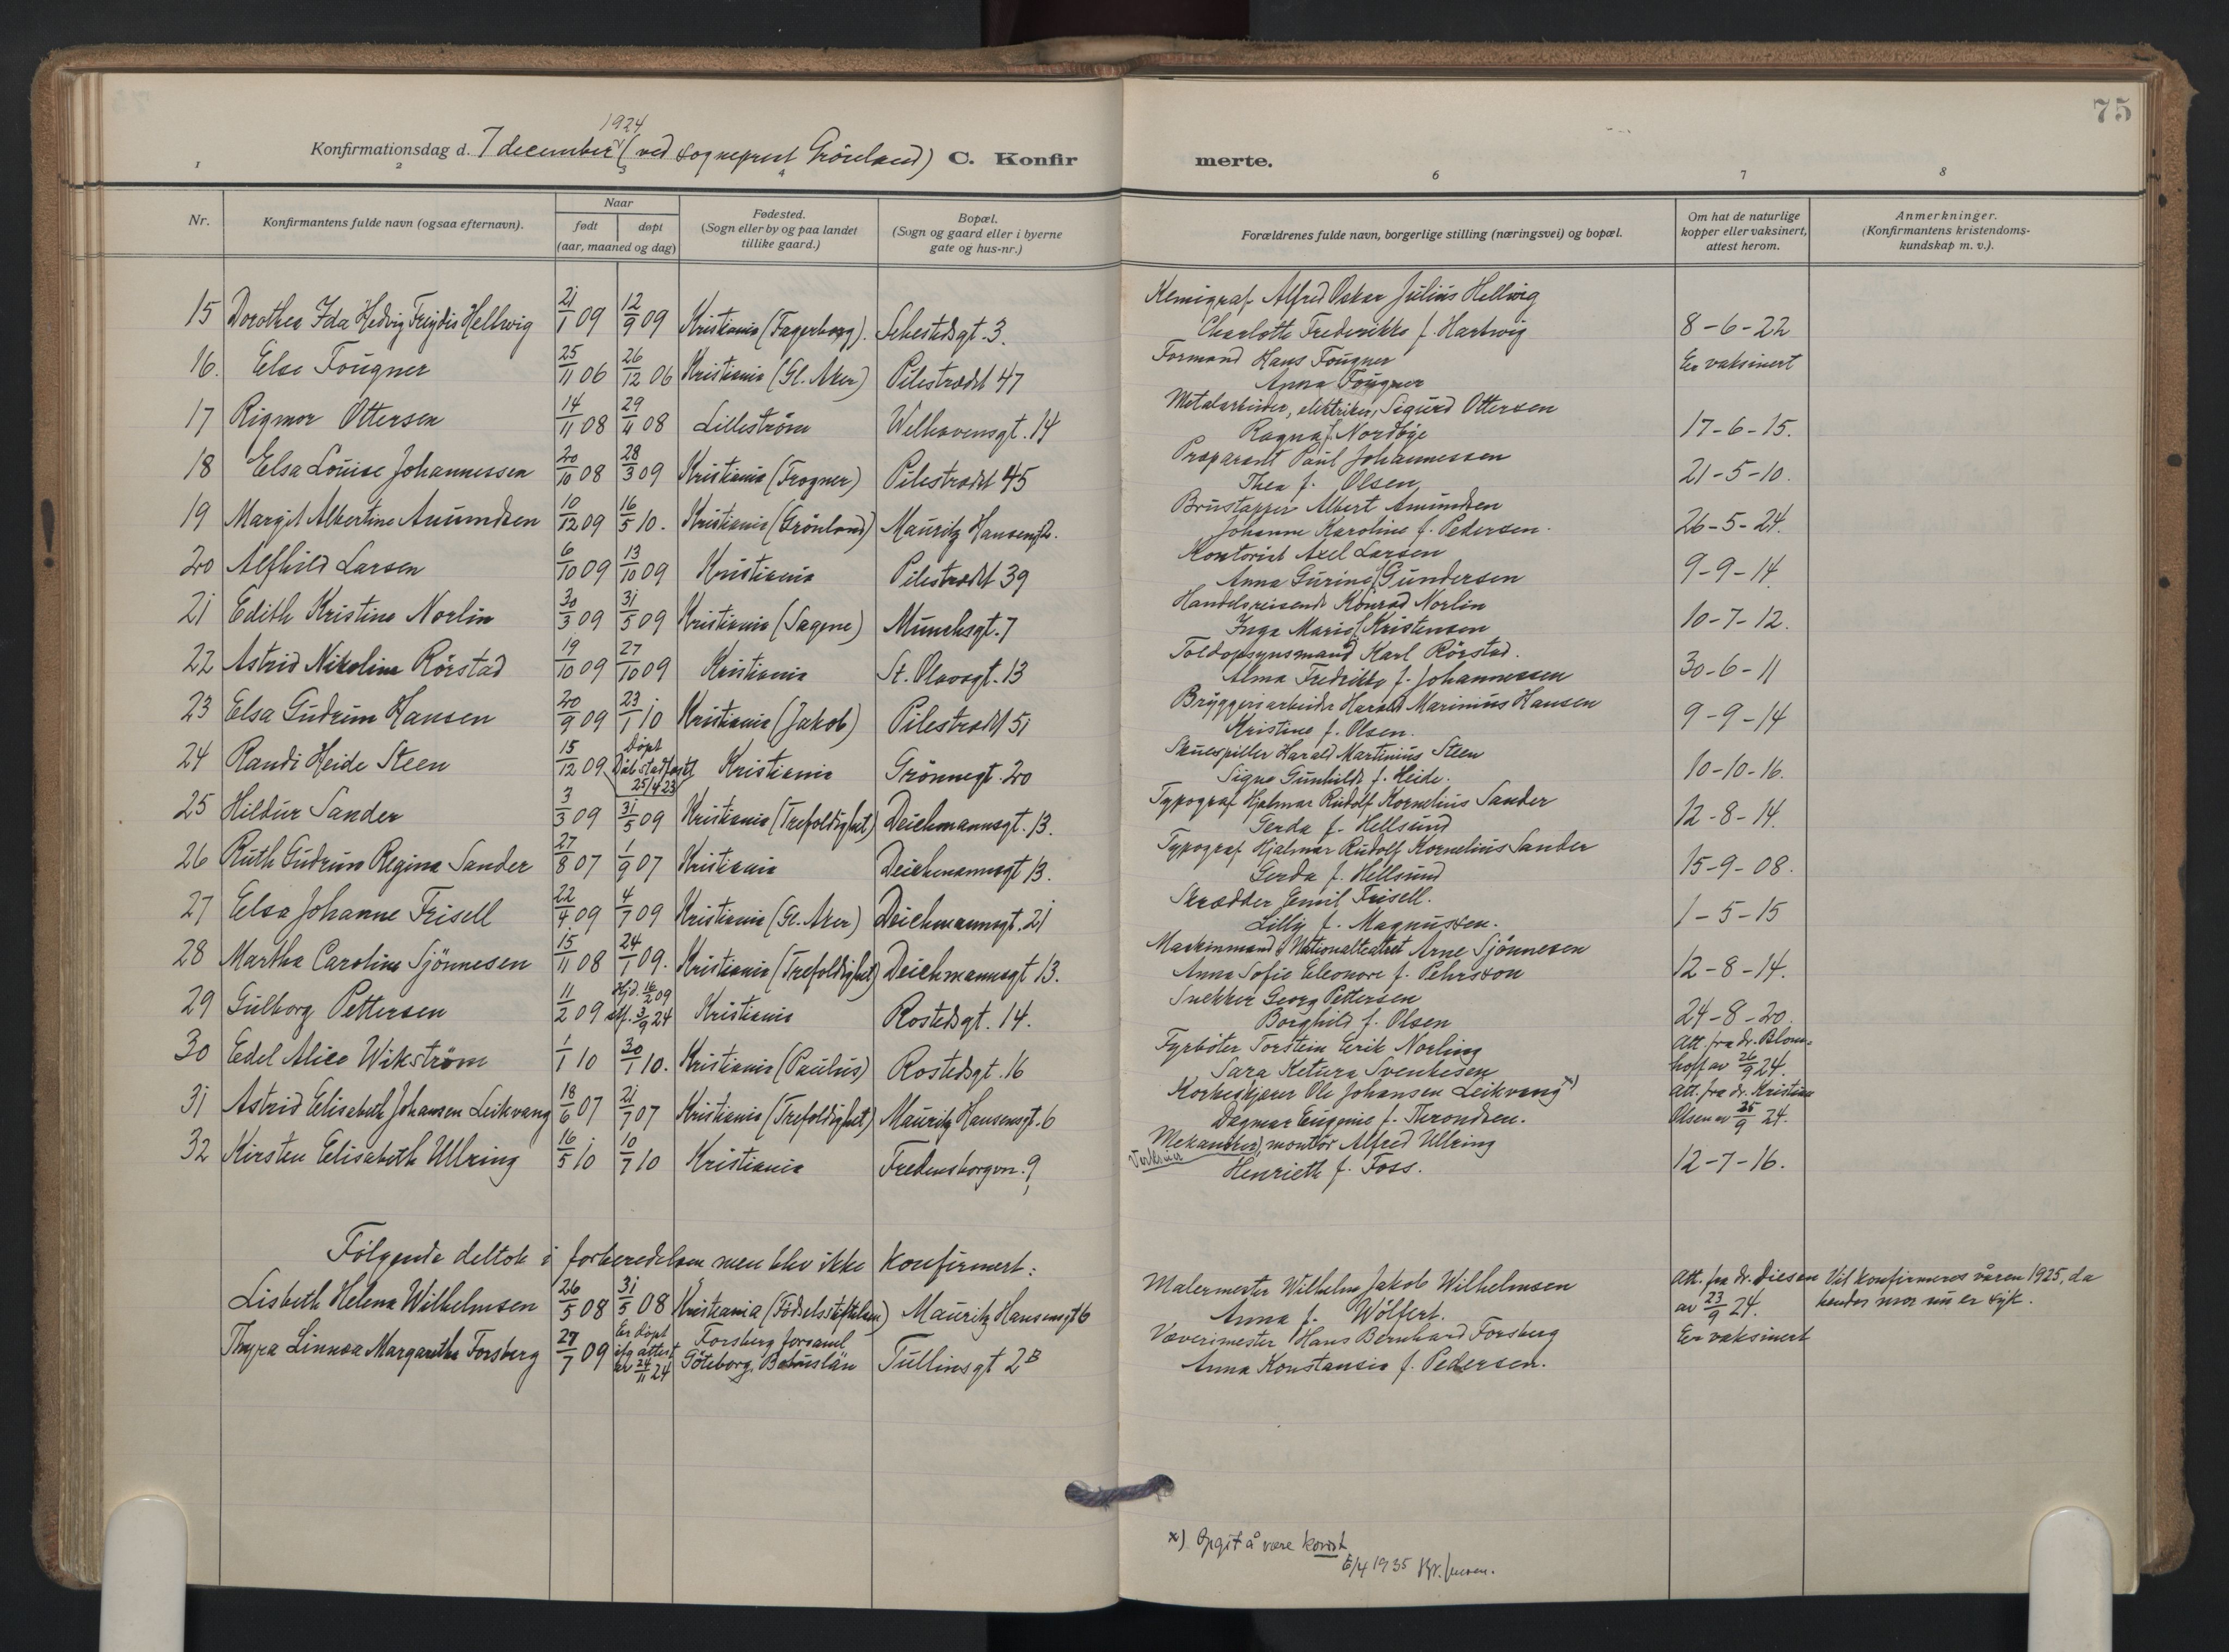 75
1924
Konfirmationsdag d. 7 december (ved sogneprest Grönland) C. Konfir merte.
1 2 3 4 6 7 8
Nr. Konfirmantens fulde navn (ogsaa efternavn). Naar født døpt (aar, maaned og dag) Fødested. (Sogn eller by og paa landet tillike gaard.) Bopæl. (Sogn og gaard eller i byerne gate og hus-nr.) Forældrenes fulde navn, borgerlige stilling (næringsvei) og bopæl. Om hat de naturlige kopper eller vaksinert, attest herom. Anmerkninger. (Konfirmantens kristendoms-kundskap m. v.).
15 Dorothea Ida Hedvig Freydis Hellwig 21/1 09 12/9 09 Kristiania (Fagerborg). Sehestedsgt. 3. Kemigraf Alfred Oskar Julius Hellwig
Charlotte Frederikke f. Hartwig 8-6-22
16. Else Fougner 25/11 06 26/12 06 Kristiania (Gl. Aker) Pilestrædet 47 Formand Hans Fougner Er vaksinert
Anna Fougner
17 Rigmor Ottersen 14/11 08 29/11 08 Lilleström Welhavensgt. 14 Metalarbeider, elektriker, Sigurd Ottersen
Ragna f. Nordbye 17-6-15.
18 Elsa Louise Johannessen 20/10 08 28/3 09 Kristiania (Frogner) Pilestrædet 45 Præparant Paul Johannessen
Thea f. Olsen 21-5-10.
19 Margit Albertine Amundsen 10/12 09 16/5 10. Kristiania (Grönland) Mauritz Hansensgt. Brustapper Albert Amundsen
Johanne Karoline f. Pedersen. 26-5-24.
20 Alfhild Larsen 6/10 09 13/10 09 Kristiania Pilestrædet 39 Kontorist Axel Larsen
Anna Gurine f. Gundersen 9-9-14.
21 Edith Kristine Norlin 30/3 09 31/5 09 Kristiania (Sagene) Munchsgt. 7 Handelsreisende Konrad Norlin
Inga Marie f. Kristensen 10-7-12.
22 Astrid Nikoline Rörstad 19/10 09 27/10 09 Kristiania St. Olavsgt. 13 Toldopsynsmand Karl Rörstad.
Alma Fredrikke f. Johannessen 30-6-11
23 Elsa Gudrun Hansen 20/9 09 23/1 10 Kristiania (Jakob) Pilestrædet 51 Bryggeriarbeider Harald Marinius Hansen
Kristine f. Olsen. 9-9-14
24 Randi Heide Steen 15/12 09 Döpt Dåb stadfæstet 25/4 23 Kristiania Grönnegt. 20 Skuespiller Harald Martinius Steen
Signe Gunhilde f. Heide. 10-10-16.
25 Hildur Sander 3/3 09 31/5 09 Kristiania (Trefoldighet) Deichmannsgt. 13. Typograf Hjalmar Rudolf Kornelius Sander
Gerda f. Hellsund 12-8-14.
26 Ruth Gudrun Regina Sander 27/8 07 1/9 07 Kristiania Deichmannsgt 13. Typograf Hjalmar Rudolf Kornelius Sander
Gerda f. Hellsund 15-9-08.
27 Elsa Johanne Frisell 22/4 09 4/7 09 Kristiania (Gl. Aker) Deichmannsgt. 21 Skrædder Emil Frisell.
Lilly f. Magnussen. 1-5-15
28 Martha Caroline Sjönnesen 15/11 08 24/1 09. Kristiania (Trefoldighet) Deichmannsgt 13. Maskinmand v/ Nationalteatret Arne Sjönnesen
Anna Sofie Eleonore f. Pehrsson 12-8-14.
29 Gulborg Pettersen 11/2 09 Hjd. 16/2 09 stf. 3/9 24 Kristiania Rostedsgt. 14. Snekker Georg Pettersen
Borghild f. Olsen 24-8-20.
30 Edel Alice Wikström 1/1 10 30/1 10. Kristiania (Paulus) Rostedsgt. 16 Fyrböter Torstein Erik Norling Att. fra dr. Blom-
Sara Ketura Svenkesen hoff av 26/9 24.
31 Astrid Elisabeth Johansen Leikvang 18/6 07 21/7 07 Kristiania (Trefoldighet) Mauritz Hansensgt. 6 Korkeskjærer Ole Johansen Leikvang x) Att. fra dr. Kristian
Dagmar Eugenie f. Therondsen. Olsen av 25/9 24.
32 Kirsten Elisabeth Ullring 16/5 10 10/7 10 Kristiania Fredensborgvn. 9 Mekaniker, montör Alfred Ullring
Henriette f. Foss. 12-7-16.
Fölgende deltok i forberedelsen men blev ikke konfirmert:
Lisbeth Helena Wilhelmsen 26/5 08 31/5 08 Kristiania (Födselsstiftelsen) Mauritz Hansensgt 6 Malermester Wilhelm Jakob Wilhelmsen Att. fra dr. Diesen Vil konfirmeres våren 1925, da
Anna f. Wölfert. av 23/9 24. hendes mor nu er syk.
Thyra Linnea Margaretha Forsberg 27/7 09 Er döpt ifg attest av 24/11 24 Forsberg forsaml Göteborg, Bohuslän Tullinsgt 2B Væverimester Hans Bernhard Forsberg Er vaksinert
Anna Konstansia f. Pedersen.
x) Opgit å være korrekt
6/4 1935